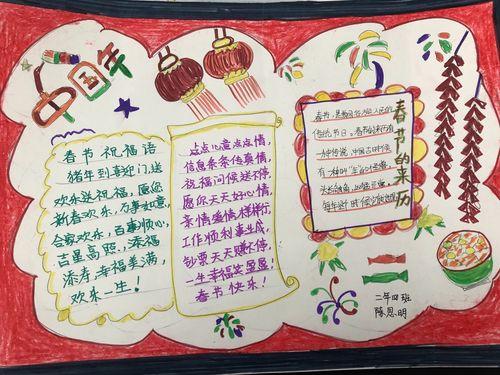 中国年
春节祝福语
猪年到喜迎门,送
欢乐送祝福,愿您
新春欢乐,万事如意,
合家欢乐,百事顺心,
吉星高照,添福
添寿幸福美满,
欢乐一生!
点点心意点点情,
信息条条传真情,
祝福问候送不停,
愿你天天好心情,
亲情爱情样样行,
工作顺利事业成,
钞票天天赚不停,
一生幸福笑盈盈!
春节快乐!
春节的来历
春节,是我国各族人民的
传统节日。春节的来历有
一种传说,中国古时候
有一种叫"年"的怪兽,
头长触角,凶猛异常
二年四班